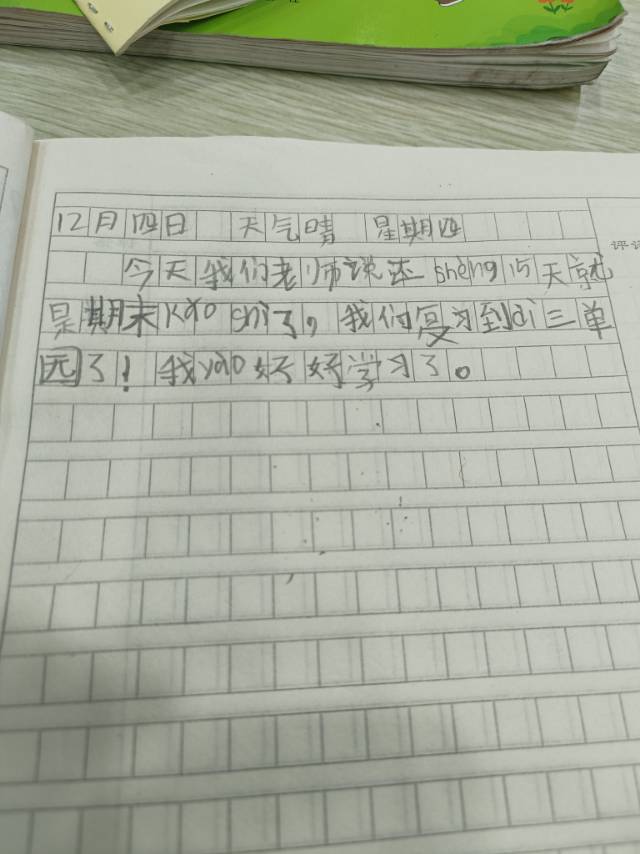 12月四日 天气晴 星期四
今天我们老师说还sheng15天就
是期末kao shi了,我们复习到di三单
园了!我yao好好学习了。